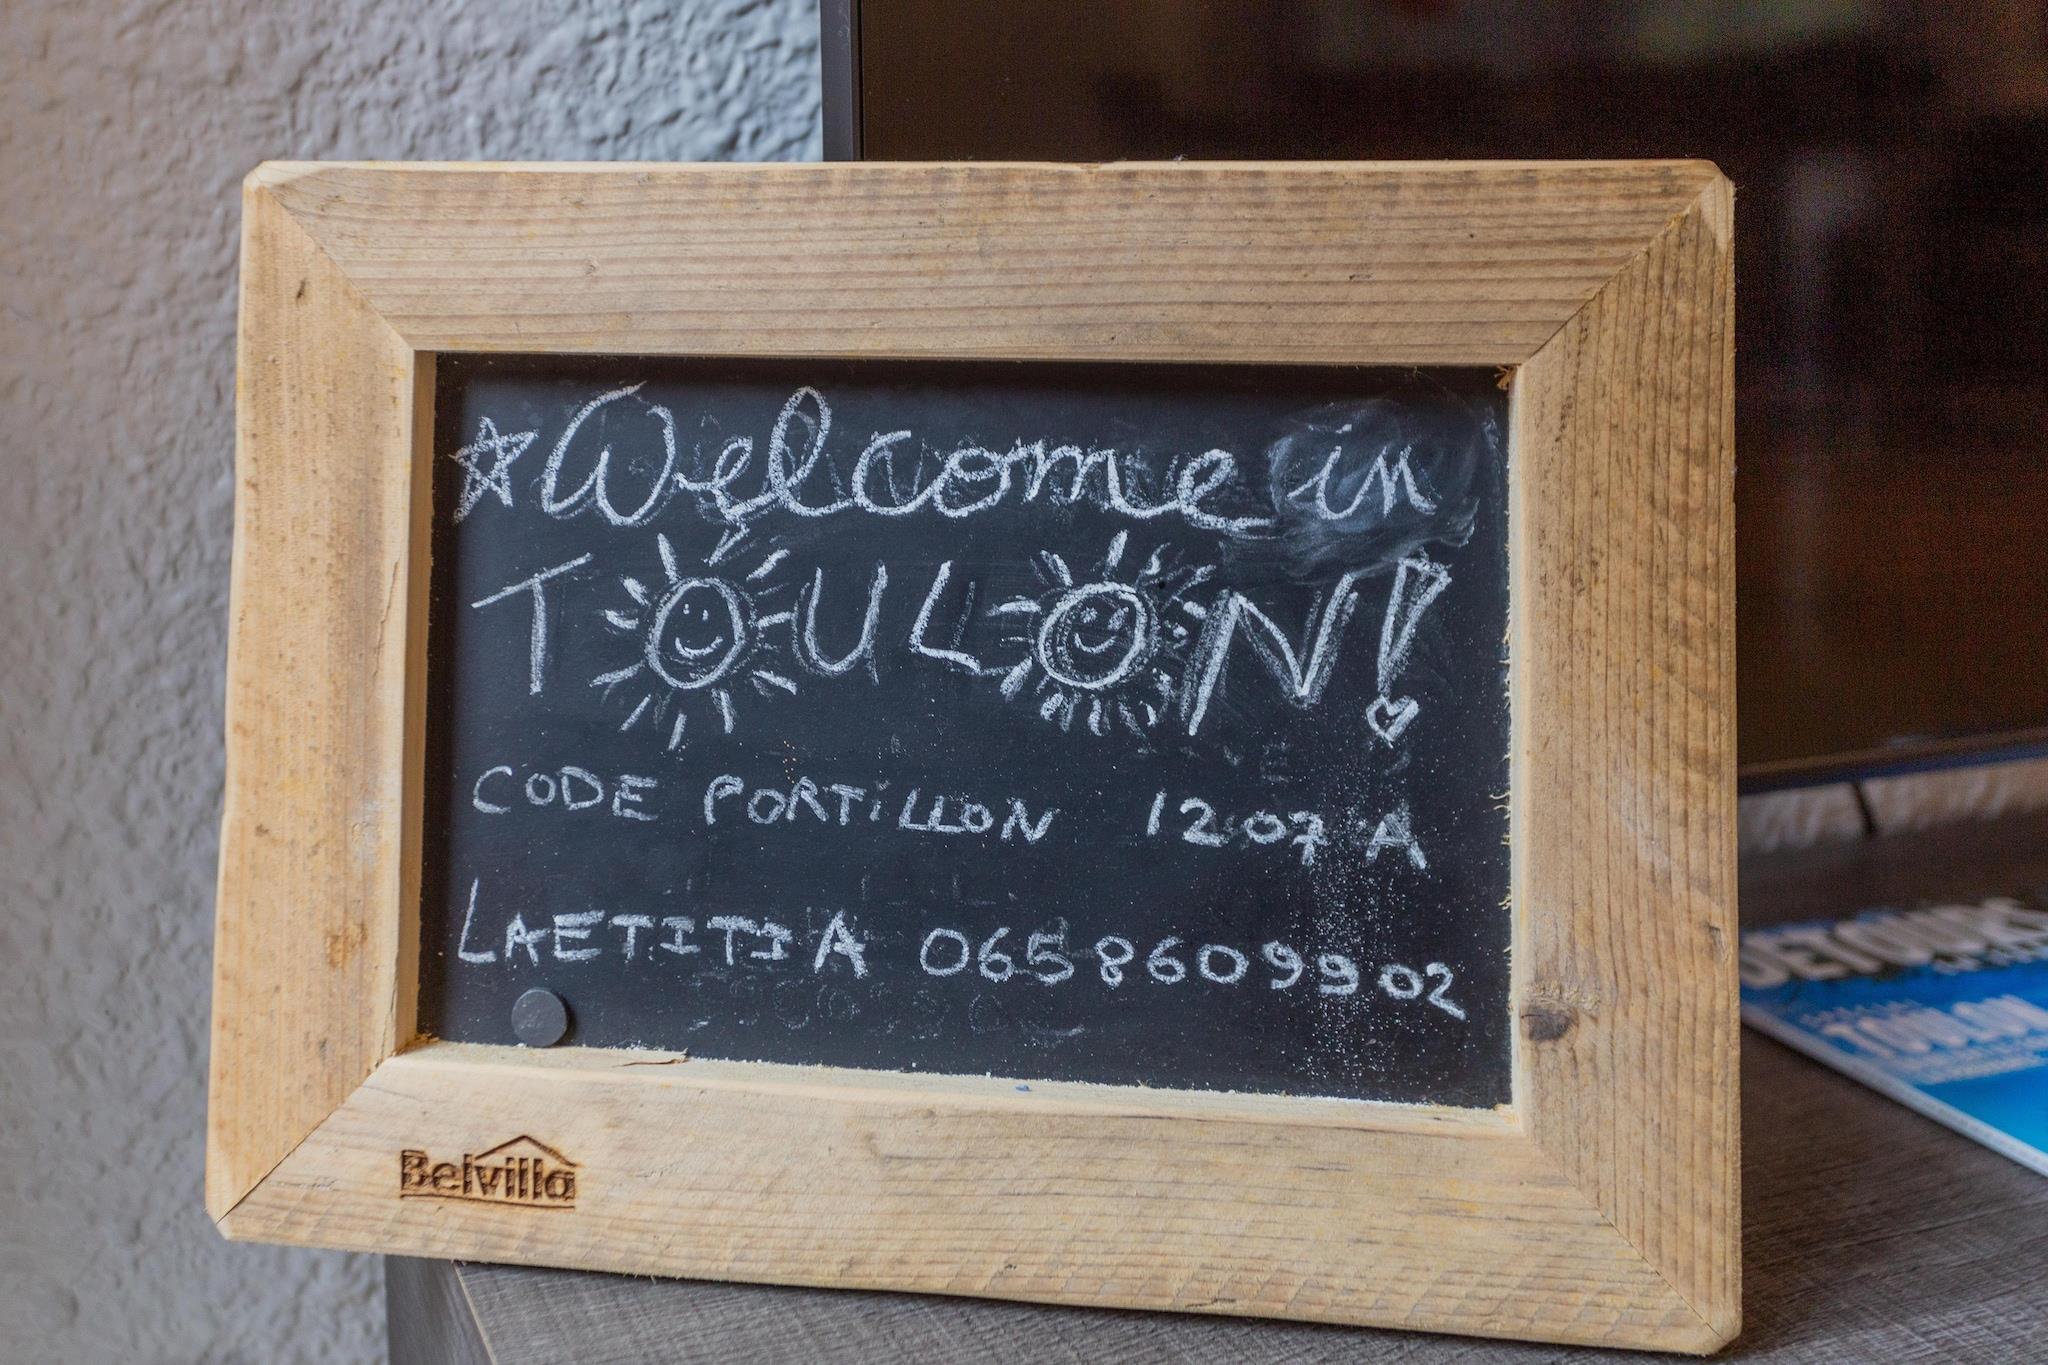 Welcome in
TOULON!
CODE PORTILLON 1207A
LAETITIA 0658609902
Belvilla
TOULON